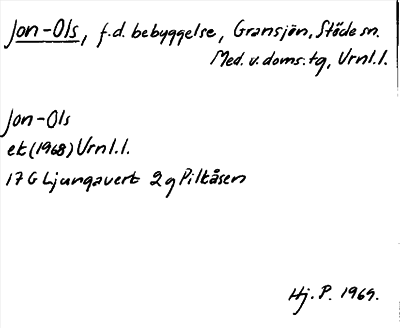 Jon-Ols, f.d. bebyggelse, Gransjön, Stöde sn.
Med. v. doms. tg, Vrnl.l.
Jon-Ols
ek (1968) Vrnl.l.
17 G Ljungaverk 2 g Pilkåsen
Hj. P. 1969.